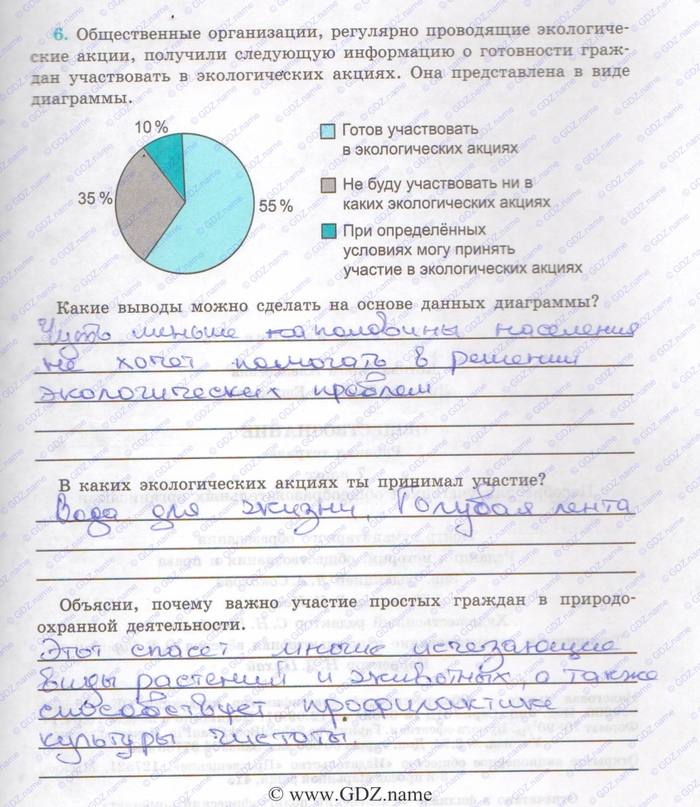 6. Общественные организации, регулярно проводящие экологиче-
ские акции, получили следующую информацию о готовности граж-
дан участвовать в экологических акциях. Она представлена в виде
диаграммы.
10 %
35 %
55 %
Готов участвовать
в экологических акциях
Не буду участвовать ни в
каких экологических акциях
При определённых
условиях могу принять
участие в экологических акциях
Какие выводы можно сделать на основе данных диаграммы?
Чуть меньше половины населения
не хочет помогать в решении
экологических проблем
В каких экологических акциях ты принимал участие?
Вода для жизни, Голубая лента
Объясни, почему важно участие простых граждан в природо-
охранной деятельности.
Этот спасет многие исчезающие
виды растений и животных, а также
способствует профилактике
культуры чистоты
© www.GDZ.name